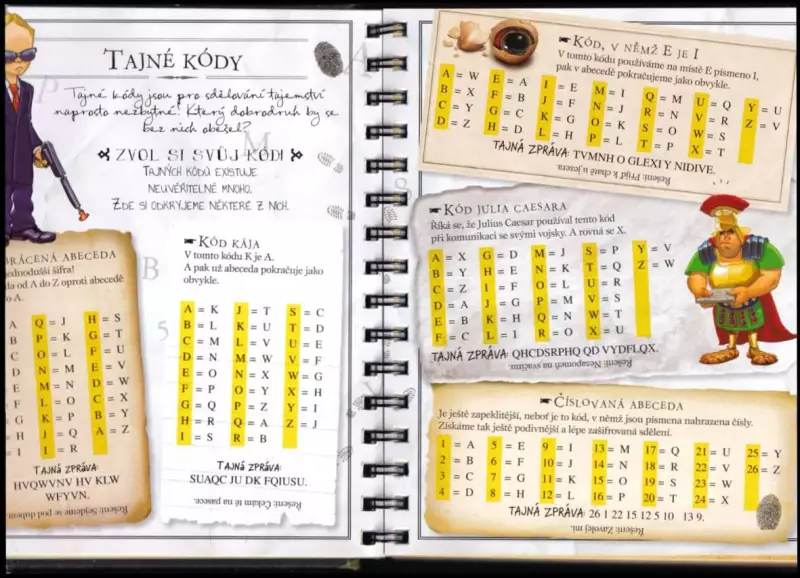 TAJNÉ KÓDY
Tajné kódy jsou pro sdělování tajemství
naprosto nezbytné! Který dobrodruh by se
bez nich obešel?
ZVOL SI SVŮJ KÓD!
TAJNÝCH KÓDŮ EXISTUJE
NEUVĚŘITELNĚ MNOHO.
ZDE SI ODKRYJEME NĚKTERÉ Z NICH.
BRÁCENÁ ABECEDA
jednodušší šifra!
da od A do Z oproti abecedě
o A.
A Q = J H = S
B P = K G = T
C O = L F = U
D N = M E = V
E M = N D = W
F L = O C = X
G K = P B = Y
H J = Q A = Z
I I = R
TAJNÁ ZPRÁVA:
HVQWVNV HV KLW
WFYVN.
Řešení: Sejdeme se pod dubem.
KÓD KÁJA
V tomto kódu K je A.
A pak už abeceda pokračuje jako
obvykle.
A = K J = T S = C
B = L K = U T = D
C = M L = V U = E
D = N M = W V = F
E = O N = X W = G
F = P O = Y X = H
G = Q P = Z Y = I
H = R Q = A Z = J
I = S R = B
TAJNÁ ZPRÁVA:
SUAQC JU DK FQIUSU.
Řešení: Čekám tě na pasece.
KÓD, V NĚMŽ E JE I
V tomto kódu používáme na místě E písmeno I,
pak v abecedě pokračujeme jako obvykle.
A = W E = A I = E M = I Q = M U = Q Y = U
B = X F = B J = F N = J R = N V = R Z = V
C = Y G = C K = G O = K S = O W = S
D = Z H = D L = H P = L T = P X = T
TAJNÁ ZPRÁVA: TVMNH O GLEXI Y NIDIVE.
Řešení: Přijď k chatě u jezera.
KÓD JULIA CAESARA
Říká se, že Julius Caesar používal tento kód
při komunikaci se svými vojsky. A rovná se X.
A = X G = D M = J S = P Y = V
B = Y H = E N = K T = Q Z = W
C = Z I = F O = L U = R
D = A J = G P = M V = S
E = B K = H Q = N W = T
F = C L = I R = O X = U
TAJNÁ ZPRÁVA: QHCDSRPHQ QD VYDFLQX.
Řešení: Nezapomeň na svačinu.
ČÍSLOVANÁ ABECEDA
Je ještě zapeklitější, neboť je to kód, v němž jsou písmena nahrazena čísly.
Získáme tak ještě podivnější a lépe zašifrovaná sdělení.
1 = A 5 = E 9 = I 13 = M 17 = Q 21 = U 25 = Y
2 = B 6 = F 10 = J 14 = N 18 = R 22 = V 26 = Z
3 = C 7 = G 11 = K 15 = O 19 = S 23 = W
4 = D 8 = H 12 = L 16 = P 20 = T 24 = X
TAJNÁ ZPRÁVA: 26 1 22 15 12 5 10 13 9.
Řešení: Zavolej mi.